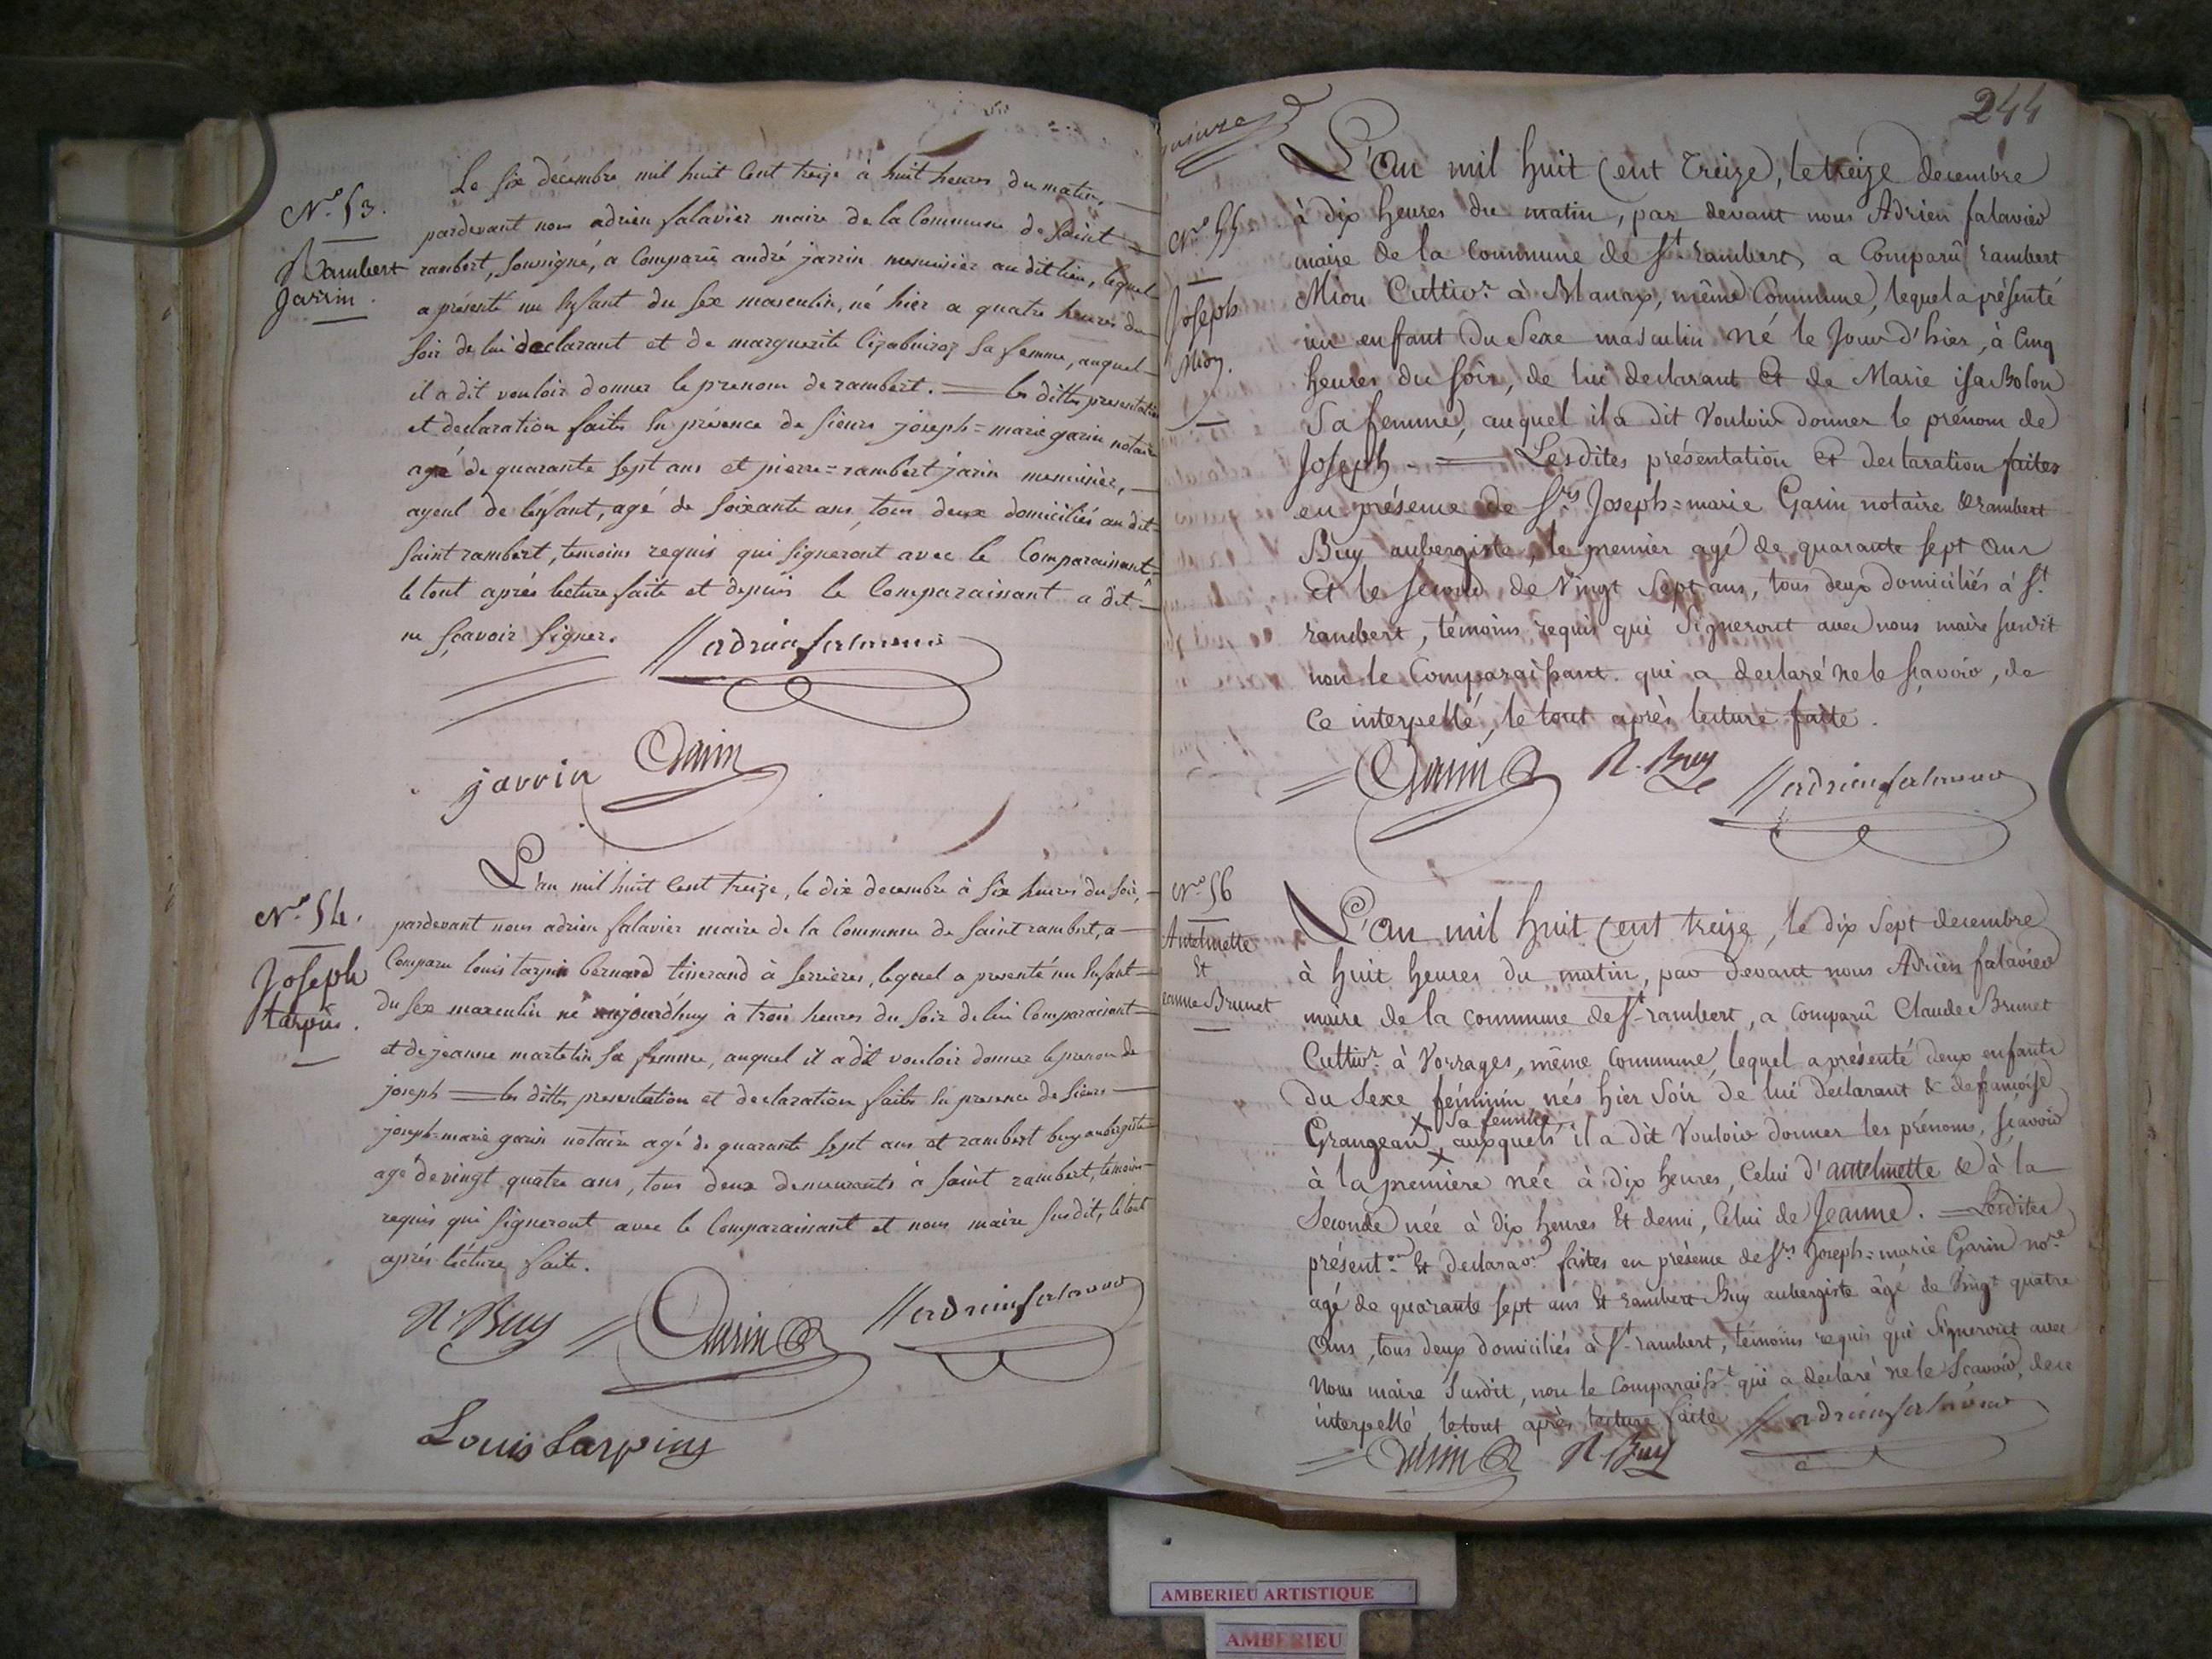 Le six décembre mil huit Cent treize à huit heures du matin,
N.º 53.
pardevant nous adrien falavier maire de la Commune de Saint
Rambert
Jarrin.
rambert, soussigné, a Comparû andré jarrin menuisier audit lieu, lequel
a présenté un Enfant du sex masculin, né hier a quatre heures du
soir de lui declarant et de marguerite sa femme, auquel
il a dit vouloir donner le prenom de rambert. = les dittes presentation
et declaration faites En présence de sieurs joseph=marie garin notaire
agé de quarante sept ans et pierre=rambert jarin menuisier,
ayeul de l'enfant, agé de soixante ans, tous deux domiciliés audit
Saint rambert, temoins requis qui signeront avec le Comparaissant
le tout après lecture faite et depuis le Comparaissant a dit
ne sçavoir signer.
adrien falavier
jarrin Garin
L'an mil huit Cent treize, le dix decembre à six heures du soir,
N.º 54.
Joseph
tarpin.
pardevant nous adrien falavier maire de la Commune de saint rambert, a
Comparu louis tarpin bernard tisserand à serrières, lequel a presenté un Enfant
du sex masculin né aujourd'huy à trois heures du soir de lui Comparaissant
et de jeanne martelin sa femme, auquel il a dit vouloir donner le prenom de
joseph = les dittes presentation et declaration faites En presence de sieurs
joseph-marie garin notaire agé de quarante sept ans et rambert buy aubergiste
agé de vingt quatre ans, tous deux demeurants à saint rambert, temoins
requis qui signeront avec le Comparaissant et nous maire susdit, le tout
après lecture faite.
R. Buy Garin adrien falavier
Louis tarpin
244
L'an mil huit Cent treize, le treize decembre
N.º 55
Joseph
Mion.
à dix heures du matin, par devant nous Adrien falavier
maire de la Commune de St rambert, a Comparû rambert
Mion Cultivr. à Blanax, même Commune, lequel a présenté
un enfant du Sexe masculin né le Jour d'hier, à Cinq
heures du soir, de lui declarant Et de Marie isa Bolon
Sa femme, auquel il a dit Vouloir donner le prénom de
Joseph. = Lesdites présentation Et declaration faites
en présence de Srs Joseph=marie Garin notaire & rambert
Buy aubergiste, le premier agé de quarante sept Ans
Et le second de Vingt Sept ans, tous deux domiciliés à St.
rambert, témoins requis qui Signeront avec nous maire susdit
non le Comparaissant qui a declaré ne le sçavoir, de
Ce interpellé, le tout après lecture faite.
Garin R. Buy adrien falavier
N.º 56
Antelmette
Et
jeanne Brunet
L'An mil huit Cent treize, le dix Sept decembre
à huit heures du matin, par devant nous Adrien falavier
maire de la Commune de St-rambert, a Comparû Claude Brunet
Cultivr. à Vorrages, même Commune, lequel a présenté deux enfants
du Sexe féminin nés hier Soir de lui declarant & de françoise
Sa femme,
Grangean, auxquels il a dit Vouloir donner les prénoms, sçavoir
à la première née à dix heures, Celui d'antelmette & à la
Seconde née à dix heures Et demi, Celui de Jeanne. = Lesdites
présenton. Et declaraon. faites en présence de Srs Joseph=marie Garin nore
agé de quarante sept ans Et rambert Buy aubergiste âgé de Vingt quatre
Ans, tous deux domiciliés à St-rambert, témoins requis qui Signeront avec
Nous maire Susdit, non le Comparaisst. qui a declaré ne le Sçavoir, de ce
interpellé le tout après lecture faite adrien falavier
Garin R. Buy
AMBERIEU ARTISTIQUE
AMBERIEU